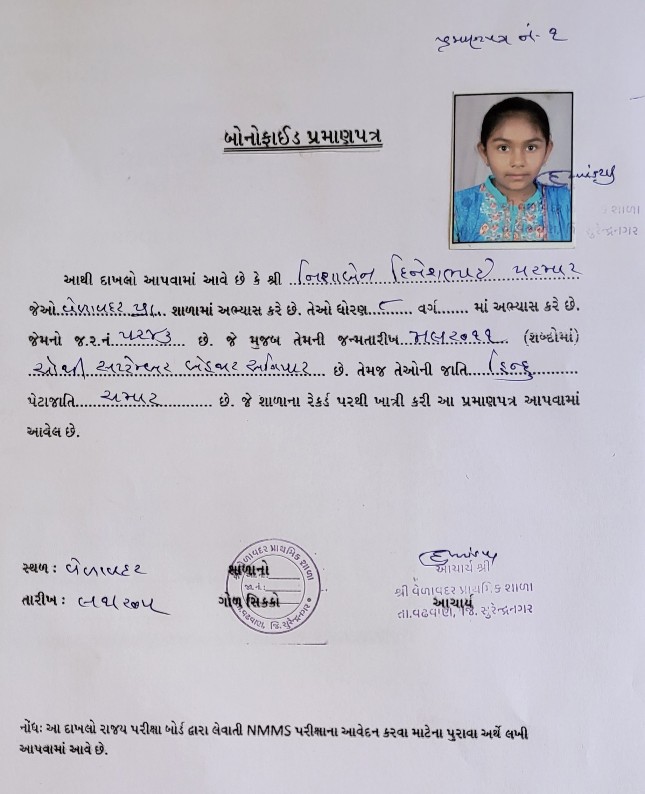 પ્રમાણપત્ર નં- ૧
બોનોફાઈડ પ્રમાણપત્ર
શાળા
સુરેન્દ્રનગર
આથી દાખલો આપવામાં આવે છે કે શ્રી નિશાબેન દિનેશભાઈ પરમાર
જેઓ વેળાવદર પ્રા. શાળામાં અભ્યાસ કરે છે. તેઓ ધોરણ ૮ વર્ગ....... માં અભ્યાસ કરે છે.
જેમનો જ.ર.નં. છે. જે મુજબ તેમની જન્મતારીખ (શબ્દોમાં)
સપ્ટેમ્બર બેહજાર અગિયાર છે. તેમજ તેઓની જાતિ હિન્દુ
પેટાજાતિ ચમાર છે. જે શાળાના રેકર્ડ પરથી ખાત્રી કરી આ પ્રમાણપત્ર આપવામાં
આવેલ છે.
સ્થળ: વેળાવદર
તારીખ:
શાળાનો
ગોળ સિક્કો
શ્રી વેળાવદર પ્રાથમિક શાળા
તા.વઢવાણ, જિ.સુરેન્દ્રનગર
આચાર્ય શ્રી
શ્રી વેળાવદર પ્રાથમિક શાળા
આચાર્ય
તા.વઢવાણ, જિ. સુરેન્દ્રનગર
નોંધ: આ દાખલો રાજય પરીક્ષા બોર્ડ દ્વારા લેવાતી NMMS પરીક્ષાના આવેદન કરવા માટેના પુરાવા અર્થે લખી
આપવામાં આવે છે.